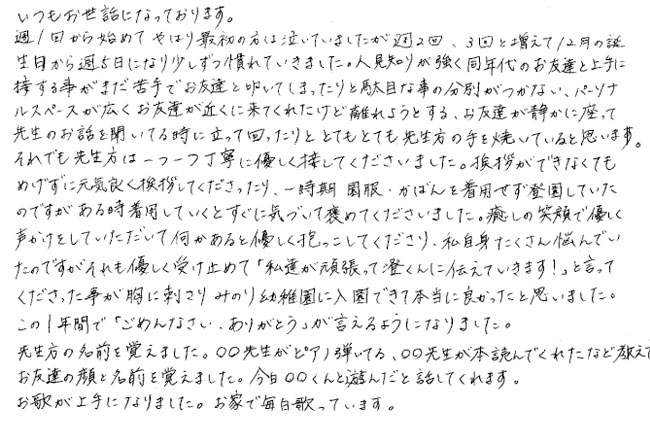 いつもお世話になっております。
週1回から始めてやはり最初の方は泣いていましたが週2回、3回と増えて12月の誕
生日から週5日になり少しずつ慣れていきました。人見知りが強く同年代のお友達と上手に
接する事がまだ苦手でお友達と叩いてしまったりと駄目な事の分別がつかない、パーソナ
ルスペースが広くお友達が近くに来てくれたけど離れようとする、お友達が静かに座って
先生のお話を聞いてる時に立って回ったりととてもとても先生方の手を焼いていると思います。
それでも先生方は一つ一つ丁寧に優しく接してくださいました。挨拶ができなくても
めげずに元気良く挨拶してくださったり、一時期園服・かばんを着用せず登園していた
のですがある時着用していくとすぐに気づいて褒めてくださいました。癒しの笑顔で優しく
声かけをしていただいて何かあると優しく抱っこしてくださり、私自身たくさん悩んでい
たのですがそれも優しく受け止めて「私達が頑張って澄くんに伝えていきます!」と言って
くださった事が胸に刺さりみのり幼稚園に入園できて本当に良かったと思いました。
この1年間で「ごめんなさい、ありがとう」が言えるようになりました。
先生方の名前を覚えました。〇〇先生がピアノ弾いてる、〇〇先生が本読んでくれたなど教えて
お友達の顔と名前を覚えました。今日〇〇くんと遊んだと話してくれます。
お歌が上手になりました。お家で毎日歌っています。